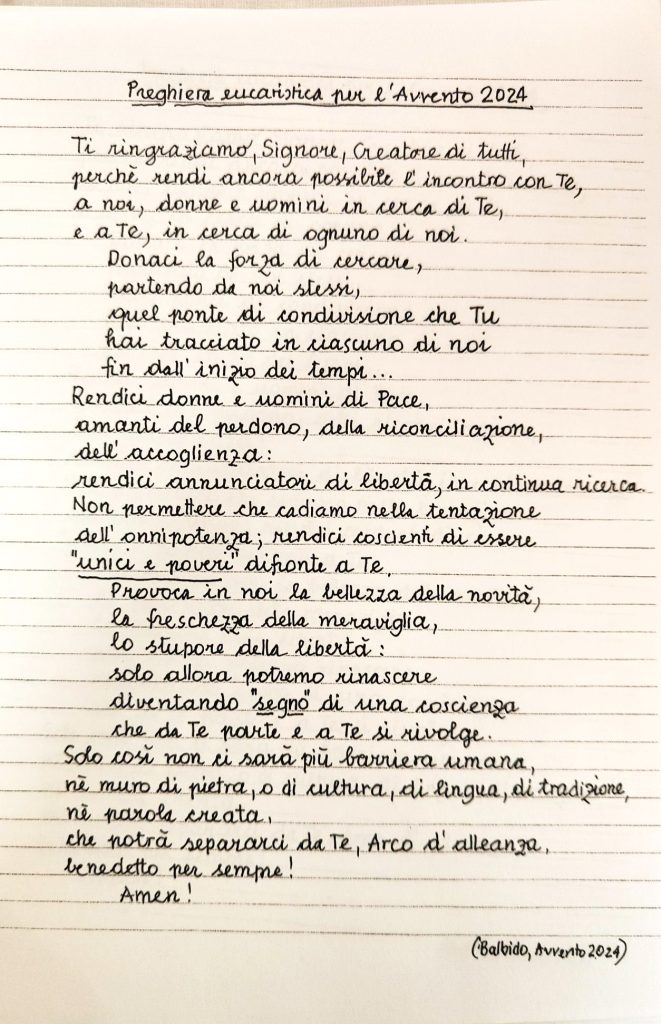 Preghiera eucaristica per l'Avvento 2024
Ti ringraziamo, Signore, Creatore di tutti,
perchè rendi ancora possibile l'incontro con Te,
a noi, donne e uomini in cerca di Te,
e a Te, in cerca di ognuno di noi.
Donaci la forza di cercare,
partendo da noi stessi,
quel ponte di condivisione che Tu
hai tracciato in ciascuno di noi
fin dall'inizio dei tempi...
Rendici donne e uomini di Pace,
amanti del perdono, della riconciliazione,
dell'accoglienza:
rendici annunciatori di libertà, in continua ricerca.
Non permettere che cadiamo nella tentazione
dell'onnipotenza; rendici coscienti di essere
"unici e poveri" difronte a Te.
Provoca in noi la bellezza della novità,
la freschezza della meraviglia,
lo stupore della libertà:
solo allora potremo rinascere
diventando "segno" di una coscienza
che da Te parte e a Te si rivolge.
Solo così non ci sarà più barriera umana,
nè muro di pietra, o di cultura, di lingua, di tradizione,
nè parola creata,
che potrà separarci da Te, Arco d'alleanza,
benedetto per sempre!
Amen!
(Balbido, Avvento 2024)